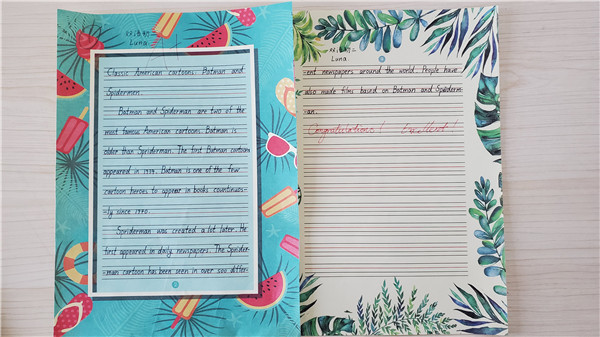 双语初二
Luna
A+
Classic American cartoons: Batman and
Spiderman.
Batman and Spiderman are two of the
most famous American cartoons. Batman is
older than Spriderman. The first Batman cartoon
appeared in 1939. Batman is one of the few
cartoon heroes to appear in books countinuous-
-ly since 1940.
Spriderman was created a lot later. He
first appeared in daily newspapers. The Spider-
-man cartoon has been seen in over 500 differ-
双语初二
Luna
-ent newspapers around the world. People have
also made films based on Batman and Spiderm-
-an.
Congratulations! Excellent!